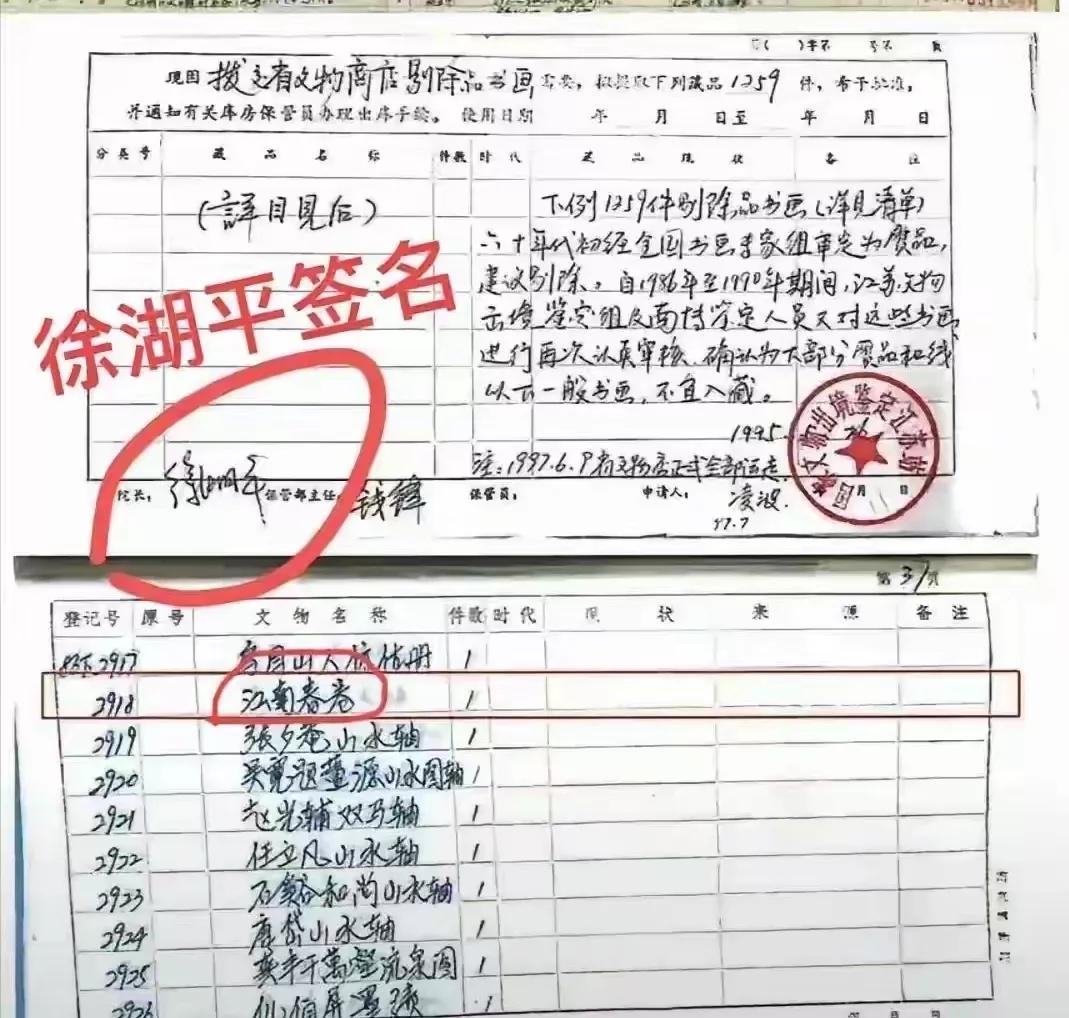 第( )字第 号第 页
现因拨交省文物商店剔除品书画需要，拟提取下列藏品1259件，希予批准，
并通知有关库房保管员办理出库手续。 使用日期 年 月 日至 年 月 日
分类号 藏品名称 件数 时代 藏品现状 备注
(詳目見后)
下例1259件剔除品书画(详见清单)
六十年代初经全国书画专家组审定为赝品，
建议剔除。自1986年至1990年期间，江苏文物
出境鉴定组及南博鉴定人员又对这些书画
进行再次认真审核、确认为大部分赝品和线
以下一般书画，不宜入藏。
徐湖平签名
1995
注：1997.6.9省文物店正式全部运走
院长： 徐湖平 保管部主任： 钱锋 保管员： 申请人： 凌波
97.7
文物出境鉴定江苏站
月 日
第31页
登记号 原号 文物名称 件数 时代 现状 来源 备注
2917 1
2918 江南春卷 1
2919 張夕菴山水轴 1
2920 吴寬题董源山水图轴 1
2921 赵光辅双马轴 1
2922 任立凡山水轴 1
2923 石谿和尚山水轴 1
2924 唐岱山水轴 1
2925 萬壑流泉图 1
2926 1